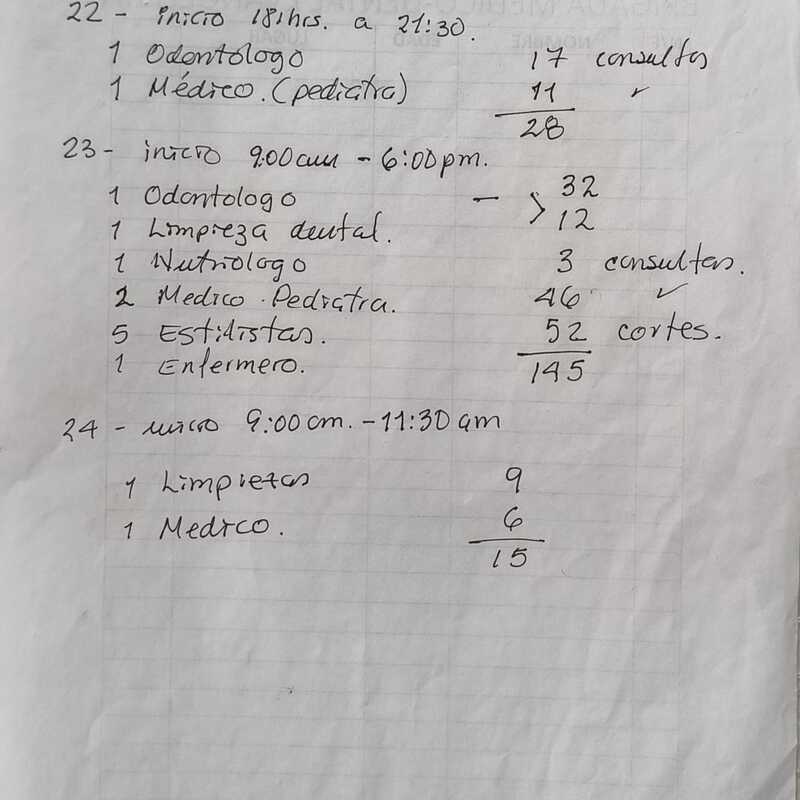 22 - inicio 18hrs. a 21:30.
1 Odontólogo 17 consultas
1 Médico. (pediatra) 11 ✓
28
23 - inicio 9:00am - 6:00pm.
1 Odontologo - > 32
1 Limpieza dental. 12
1 Nutriologo 3 consultas.
2 Medico. Pediatra. 46 ✓
5 Estilistas. 52 cortes.
1 Enfermero. 145
24 - inicio 9:00am. - 11:30 am
1 Limpiezas 9
1 Medico. 6
15